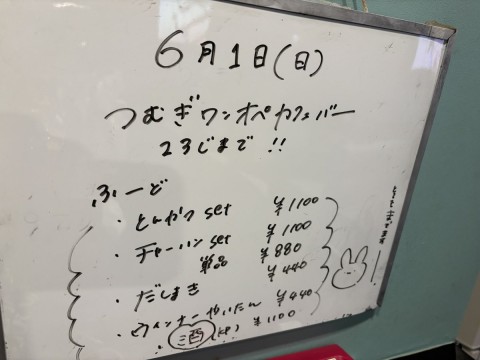 6月1日(日)
つむぎワンオペカフェバー
23じまで!!
ふーど
・とんかつ set ¥1100
・チャーハン set ¥1100
単品 ¥880
・だしまき ¥440
・ウインナーやいたん ¥440
酒 ¥1100